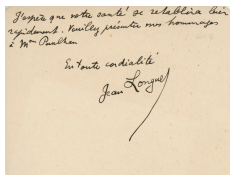 J'espère que votre santé se rétablira bien
rapidement. Veuillez présenter mes hommages
à Mme Paulhan
En toute cordialité
Jean Longuet